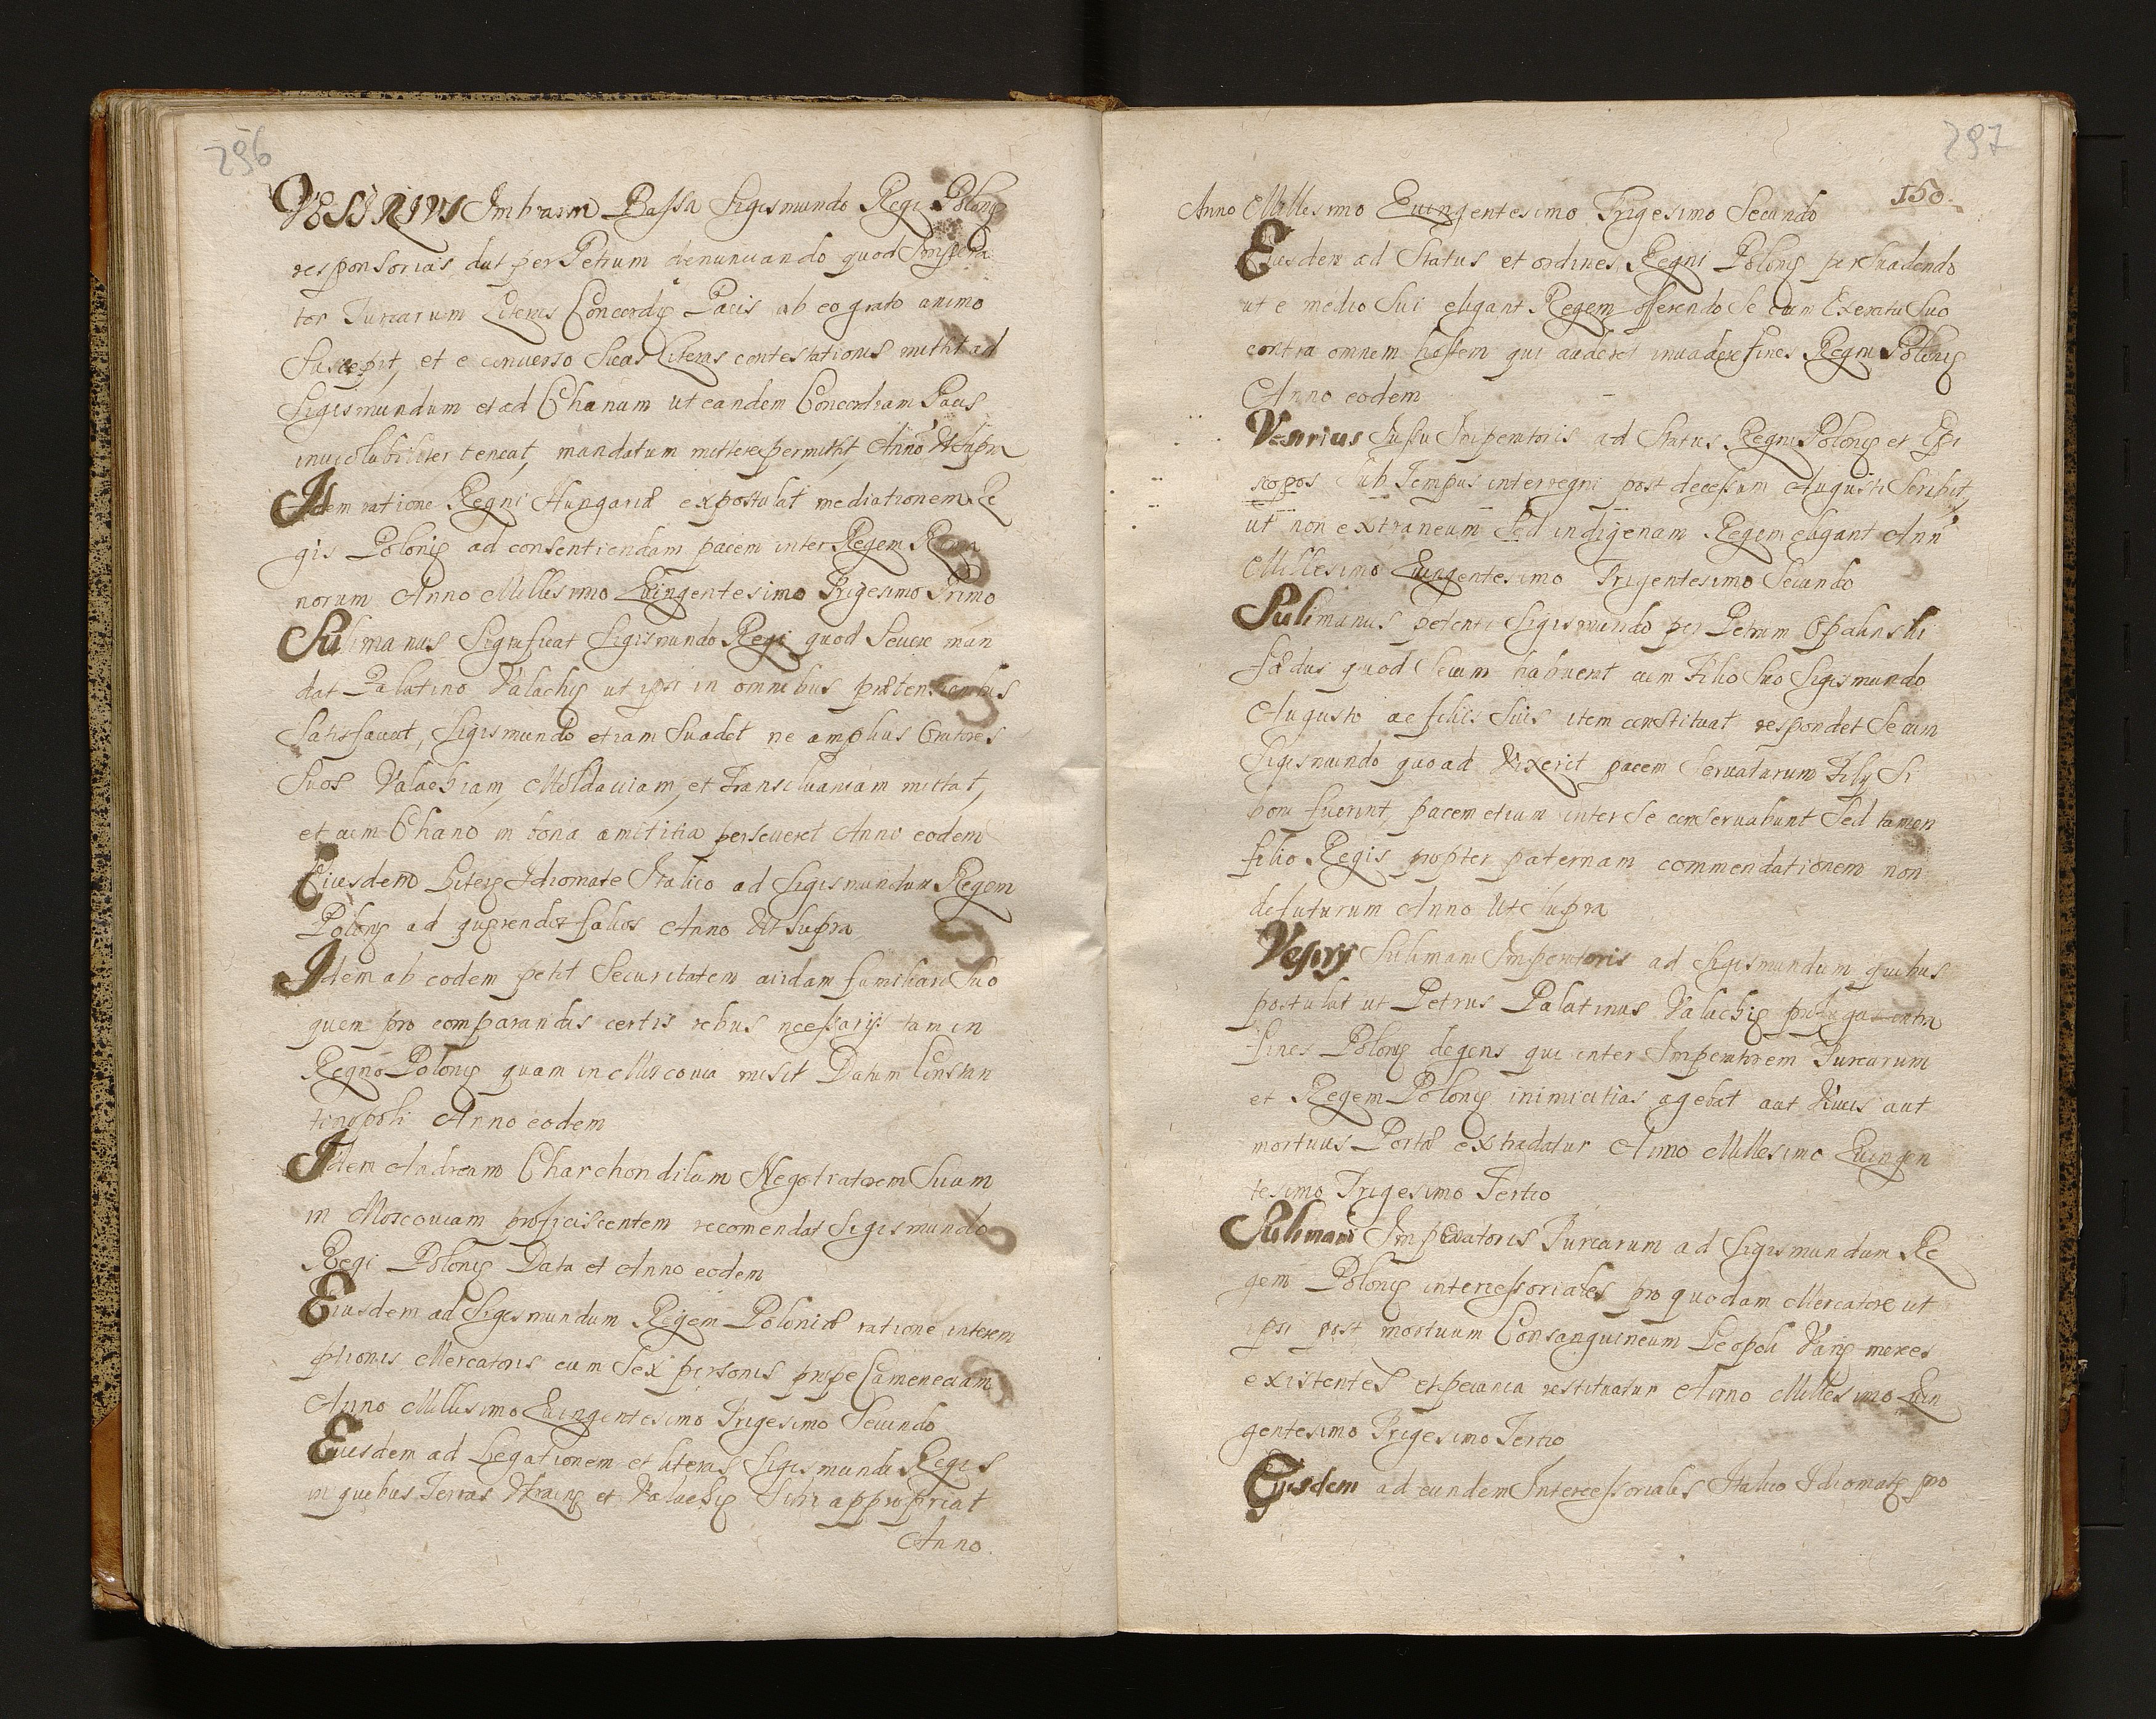 296
VESIRIVS Imbraim Bassa Sigismundo Regi Polonię
responsorias dat per Petrum denunciando quod Impera
tor Turcarum Literas Concordię Pacis ab eo grato animo
Suscepit, et e converso Suas Literas contestationis mittit ad
Sigismundum et ad Chanum ut eandem Concordiam Pacis
inviolabiliter teneat, mandatum mittere permittit, Anno Ut supra
Idem ratione Regni Hungariæ expostulat mediationem Re
gis Polonię ad consentiendam pacem inter Regem Roma
norum Anno Millesimo Quingentesimo Trigesimo Primo
Sulimanus Significat Sigismundo Regi quod Severe man
dat Palatino Valachię ut ipsi in omnibus prætensionibus
Satisfaciat, Sigismundo etiam Suadet ne amplius Oratores
Suos Valachiam, Moldaviam, et Transilvaniam mittat,
et cum Chano in bona amititia perseveret Anno eodem
Eiusdem Literę Idiomate Italico ad Sigismundum Regem
Polonię ad quęrendos falios Anno Ut Supra
Idem ab eodem petit Securitatem cuidam familiari Suo
quem pro comparandis certis rebus necessarijs tam in
Regno Polonię quam in Muscovia misit Datum Constan
tinopoli Anno eodem
Idem Andream Charchondilam Negotiatorem Suum
in Moscoviam proficiscentem recomendat Sigismundo
Regi Polonię Data et Anno eodem
Eiusdem ad Sigismundum Regem Poloniæ ratione interem
ptionis Mercatoris cum Sex personis prope Cameneciam
Anno Millesimo Quingentesimo Trigesimo Secundo
Eiusdem ad Legationem et literas Sigismundi Regis
in quibus Terras Vkrainę et Valachię Sibi appropriat
Anno.
297
150.
Anno Millesimo Quingentesimo Trigesimo Secundo
Eiusdem ad Status et ordines Regni Polonię persuadendo
ut e medio Sui eligant Regem offerendo Se cum Exercitu Suo
contra omnem hostem qui auderet invadere fines Regni Polonię
Anno eodem
Vesirius Jussu Imperatoris ad Status Regni Polonię et Epi
scopos Sub Tempus interregni post decessum Augusti Scribit,
ut non extraneum Sed indigenam Regem eligant Ann
Millesimo Quingentesimo Trigentesimo Secundo
Sulimanus petenti Sigismundo per Petrum Opalinski
fædus quod Secum habuerit cum Filio Suo Sigismundo
Augusto ac filiis Suis item constituat respondet Se cum
Sigismundo quoad Vixerit pacem Servaturum Filij Si
boni fuerint, pacem etiam inter Se conservabunt Sed tamen
filio Regis propter paternam commendationem non
defuturum Anno Ut Supra
Vesirij Sulimani Imperatoris ad Sigismundum quibus
postulat ut Petrus Palatinus Valachię profuga intra
fines Polonię degens qui inter Imperatorem Turcarum
et Regem Polonię inimicitias agebat aut Vivus aut
mortuus Portæ extradatur Anno Millesimo Quingen
tesimo Trigesimo Tertio
Sulimani Imperatoris Turcarum ad Sigismundum Re
gem Polonię intercessoriales pro quodam Mercatore ut
ipsi post mortuum Consanguineum Leopoli Varię merces
existentes et pecunia restituatur Anno Millesimo Quin
gentesimo Trigesimo Tertio
Eiusdem ad eundem Intercessoriales Italico Idiomate pro